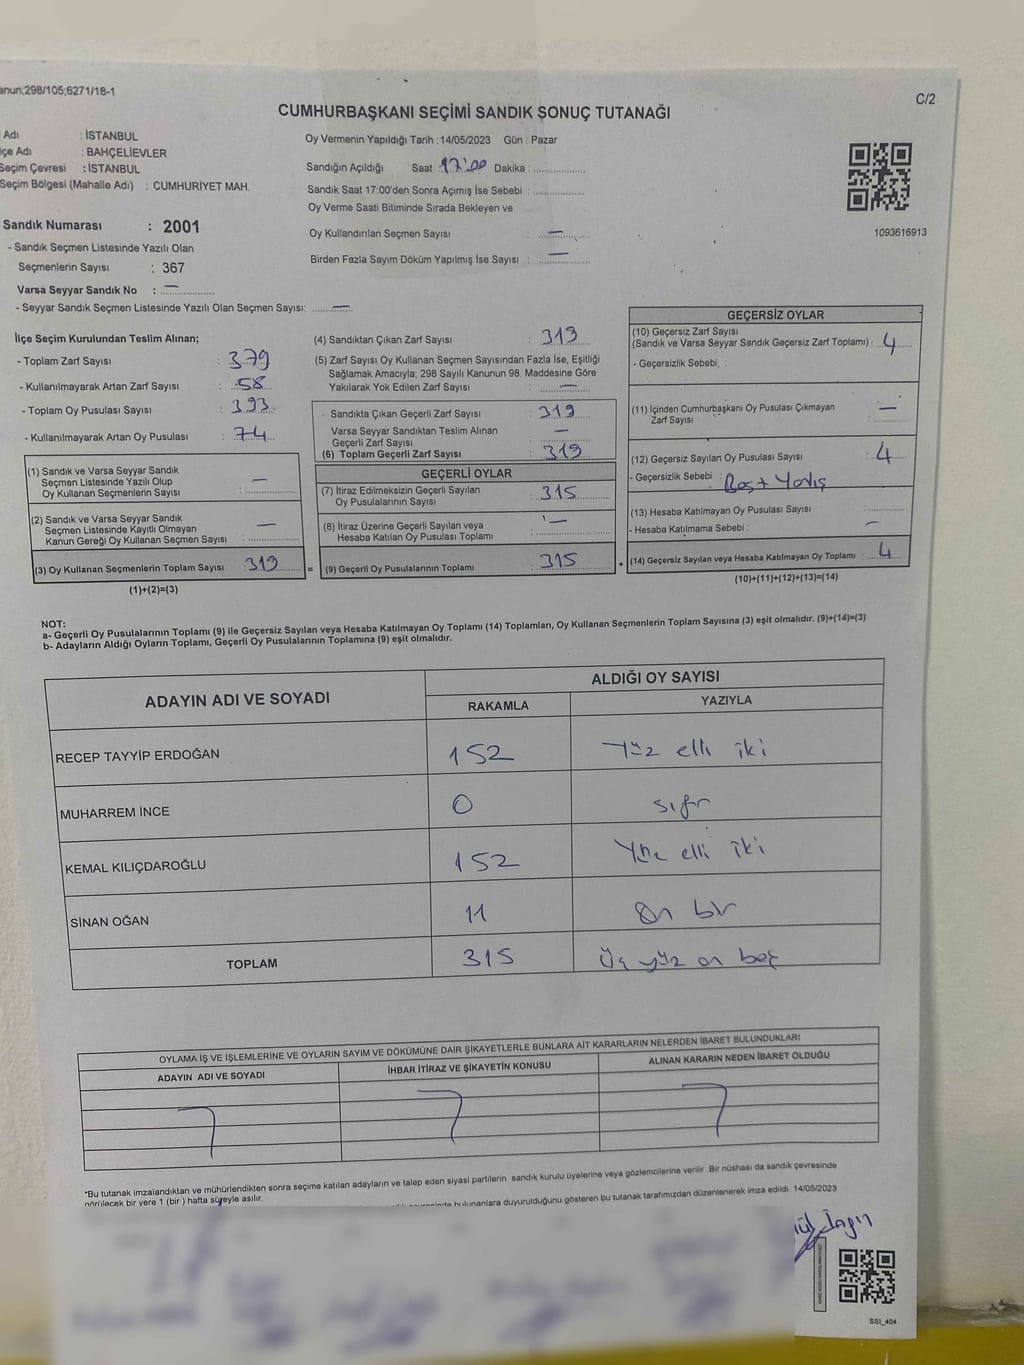 anun;298/105;6271/18-1
C/2
CUMHURBAŞKANI SEÇİMİ SANDIK SONUÇ TUTANAĞI
Adı : İSTANBUL
çe Adı : BAHÇELİEVLER
Seçim Çevresi : İSTANBUL
Seçim Bölgesi (Mahalle Adı) : CUMHURİYET MAH.
Sandık Numarası : 2001
- Sandık Seçmen Listesinde Yazılı Olan
Seçmenlerin Sayısı : 367
Varsa Seyyar Sandık No : —
- Seyyar Sandık Seçmen Listesinde Yazılı Olan Seçmen Sayısı: —
Oy Vermenin Yapıldığı Tarih : 14/05/2023 Gün : Pazar
Sandığın Açıldığı Saat 17:00 Dakika :
Sandık Saat 17:00'den Sonra Açımış İse Sebebi :
Oy Verme Saati Bitiminde Sırada Bekleyen ve
Oy Kullandırılan Seçmen Sayısı : —
Birden Fazla Sayım Döküm Yapılmış İse Sayısı : —
1093616913
İlçe Seçim Kurulundan Teslim Alınan;
- Toplam Zarf Sayısı : 379
- Kullanılmayarak Artan Zarf Sayısı : 58
- Toplam Oy Pusulası Sayısı : 393
- Kullanılmayarak Artan Oy Pusulası : 74
(1) Sandık ve Varsa Seyyar Sandık
Seçmen Listesinde Yazılı Olup
Oy Kullanan Seçmenlerin Sayısı : —
(2) Sandık ve Varsa Seyyar Sandık
Seçmen Listesinde Kayıtlı Olmayan
Kanun Gereği Oy Kullanan Seçmen Sayısı : —
(3) Oy Kullanan Seçmenlerin Toplam Sayısı : 319
(1)+(2)=(3)
=
(4) Sandıktan Çıkan Zarf Sayısı : 319
(5) Zarf Sayısı Oy Kullanan Seçmen Sayısından Fazla İse, Eşitliği
Sağlamak Amacıyla; 298 Sayılı Kanunun 98. Maddesine Göre
Yakılarak Yok Edilen Zarf Sayısı : —
- Sandıkta Çıkan Geçerli Zarf Sayısı : 319
Varsa Seyyar Sandıktan Teslim Alınan
Geçerli Zarf Sayısı : —
(6) Toplam Geçerli Zarf Sayısı : 319
GEÇERLİ OYLAR
(7) İtiraz Edilmeksizin Geçerli Sayılan
Oy Pusulalarının Sayısı : 315
(8) İtiraz Üzerine Geçerli Sayılan veya
Hesaba Katılan Oy Pusulası Toplamı : —
(9) Geçerli Oy Pusulalarının Toplamı : 315
+
GEÇERSİZ OYLAR
(10) Geçersiz Zarf Sayısı
(Sandık ve Varsa Seyyar Sandık Geçersiz Zarf Toplamı) : 4
- Geçersizlik Sebebi, :
(11) İçinden Cumhurbaşkanı Oy Pusulası Çıkmayan
Zarf Sayısı : —
(12) Geçersiz Sayılan Oy Pusulası Sayısı : 4
- Geçersizlik Sebebi : Boş + Yanlış
(13) Hesaba Katılmayan Oy Pusulası Sayısı :
- Hesaba Katılmama Sebebi : —
(14) Geçersiz Sayılan veya Hesaba Katılmayan Oy Toplamı : 4
(10)+(11)+(12)+(13)=(14)
NOT:
a- Geçerli Oy Pusulalarının Toplamı (9) ile Geçersiz Sayılan veya Hesaba Katılmayan Oy Toplamı (14) Toplamları, Oy Kullanan Seçmenlerin Toplam Sayısına (3) eşit olmalıdır. (9)+(14)=(3)
b- Adayların Aldığı Oyların Toplamı, Geçerli Oy Pusulalarının Toplamına (9) eşit olmalıdır.
ADAYIN ADI VE SOYADI ALDIĞI OY SAYISI
RAKAMLA YAZIYLA
RECEP TAYYİP ERDOĞAN 152 Yüz elli iki
MUHARREM İNCE 0 sıfır
KEMAL KILIÇDAROĞLU 152 Yüz elli iki
SİNAN OĞAN 11 On bir
TOPLAM 315 Üç yüz on beş
OYLAMA İŞ VE İŞLEMLERİNE VE OYLARIN SAYIM VE DÖKÜMÜNE DAİR ŞİKAYETLERLE BUNLARA AİT KARARLARIN NELERDEN İBARET BULUNDUKLARI
ADAYIN ADI VE SOYADI İHBAR İTİRAZ VE ŞİKAYETİN KONUSU ALINAN KARARIN NEDEN İBARET OLDUĞU
*Bu tutanak imzalandıktan ve mühürlendikten sonra seçime katılan adayların ve talep eden siyasi partilerin sandık kurulu üyelerine veya gözlemcilerine verilir. Bir nüshası da sandık çevresinde
görülecek bir yere 1 (bir ) hafta süreyle asılır.
bulunanlara duyurulduğunu gösteren bu tutanak tarafımızdan düzenlenerek imza edildi. 14/05/2023
SSI_404